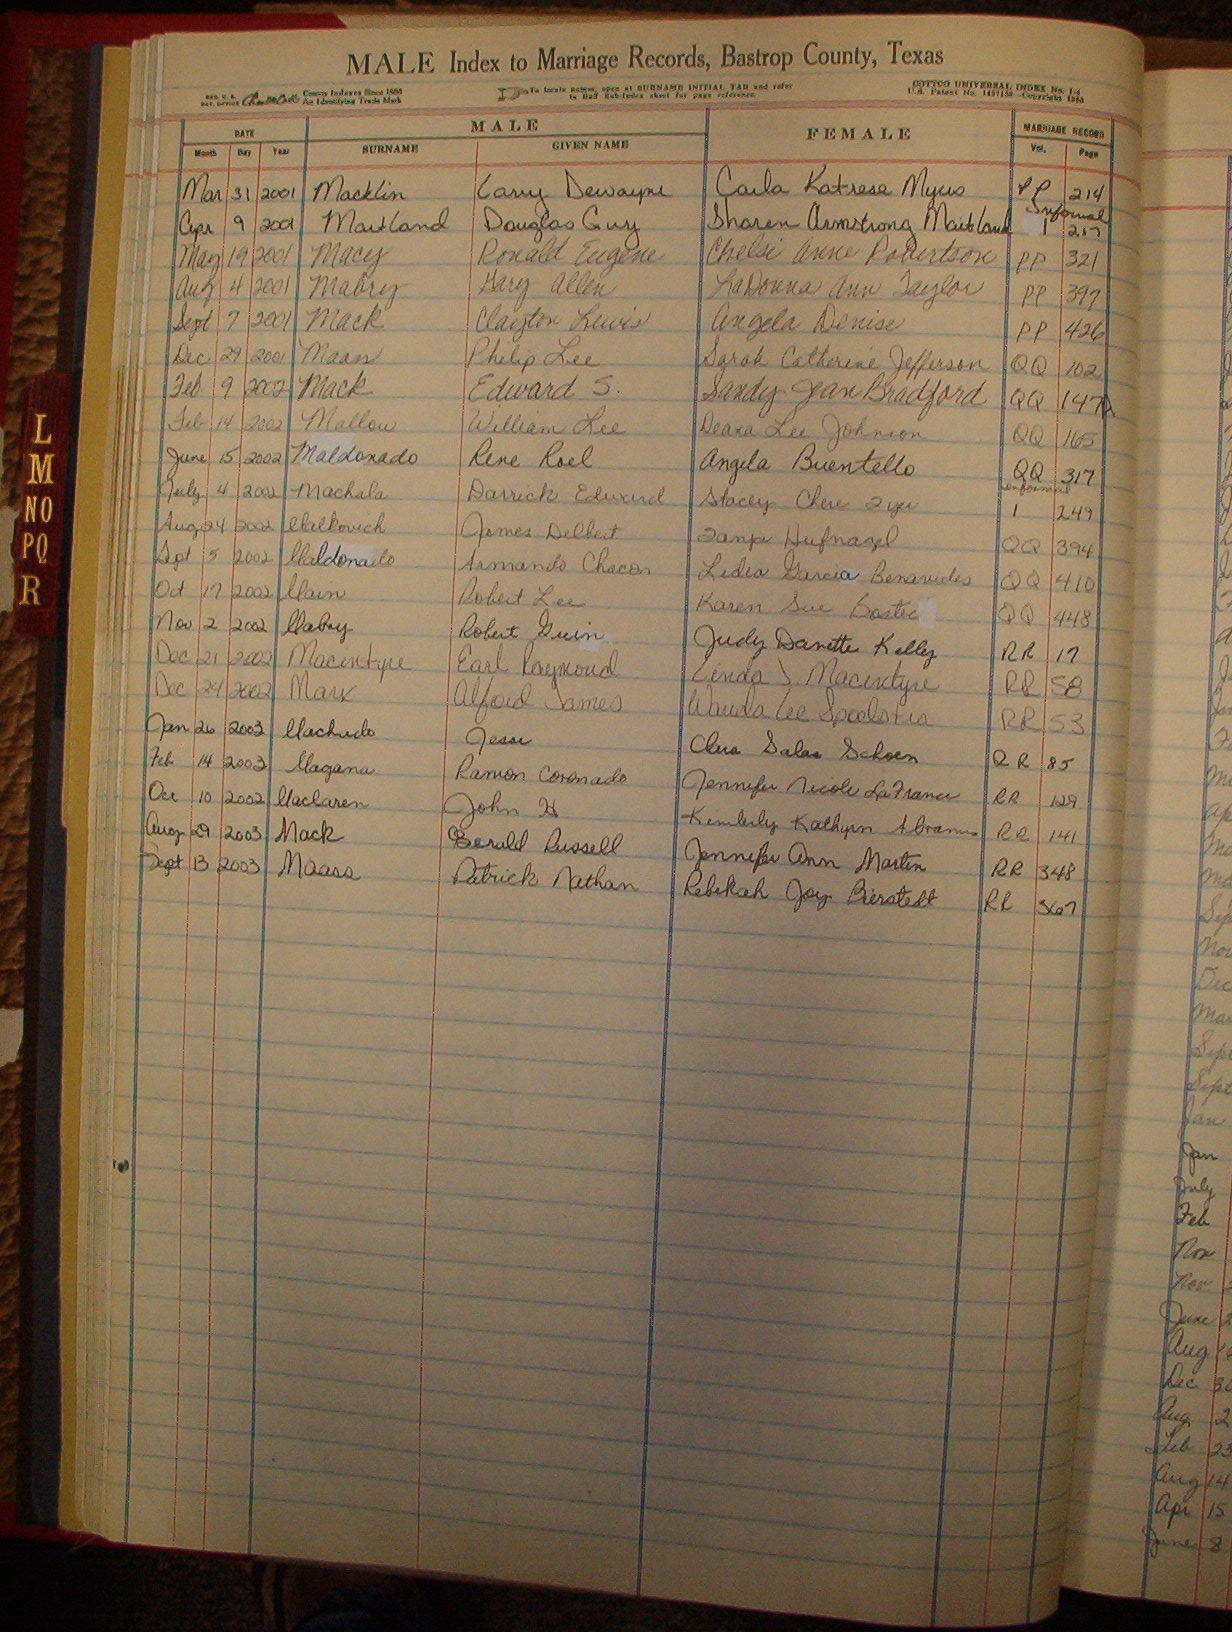 MALE Index to Marriage Records, Bastrop County, Texas
County Indexes Since 1888
An Identifying Trade Mark
To locate names, open at SURNAME INITIAL TAB and refer
to Buff Sub-Index sheet for page reference.
COTTCO UNIVERSAL INDEX No. 1-4
DATE MALE FEMALE MARRIAGE RECORD
Month Day Year SURNAME GIVEN NAME Vol. Page
Mar 31 2001 Macklin Larry Dewayne Carla Katrese PP 214
Apr 9 2001 Maitland Douglas Guy Sharen Armstrong Maitland Informal 1 217
May 19 2001 Macy Ronald Eugene Chelsi Anne Robertson PP 321
Aug 4 2001 Mabry Gary Allen LaDonna Ann Taylor PP 397
Sept 7 2001 Mack Clayton Lewis Angela Denise PP 426
Dec 29 2001 Maas Philip Lee Sarah Catherine Jefferson QQ 102
Feb 9 2002 Mack Edward S. Sandy Jean Bradford QQ 147
Feb 14 2002 Mallow William Lee Deana Lee Johnson QQ 165
June 15 2002 Maldonado Rene Roel Angela Buentello QQ 317
July 4 2002 Machala Darrick Edward Stacey Informal 1 249
Aug 24 2002 Malkovich James Delbert Tanja Hufnagel QQ 394
Sept 5 2002 Maldonado Armando Chacon Lidia Garcia Benavides QQ 410
Oct 17 2002 Main Robert Lee Karen Sue Bostic QQ 448
Nov 2 2002 Mabry Robert Judy Danette Kelley RR 17
Dec 21 2002 Macintyre Earl Raymond Linda J. Macintyre RR 58
Dec 24 2002 Marx Alfred James Wanda Lee RR 53
Jan 26 2003 Machado Jesse Salas Schoen RR 85
Feb 14 2003 Magana Ramon Coronado Jennifer Nicole LaFrance RR 129
Oct 10 2002 Maclaren John H Kimberly Kathryn Abrams RR 141
Aug 29 2003 Mack Gerald Russell Jennifer Ann Martin RR 348
Sept 13 2003 Maass Patrick Nathan Rebekah Joy Bierstedt RR 367
L
M
NO
PQ
R
Sept
Jan
Jan
July
Feb
Nov
Nov
June 2
Aug
Dec 30
Aug 2
Feb 23
Aug 14
Apr 15
June 8